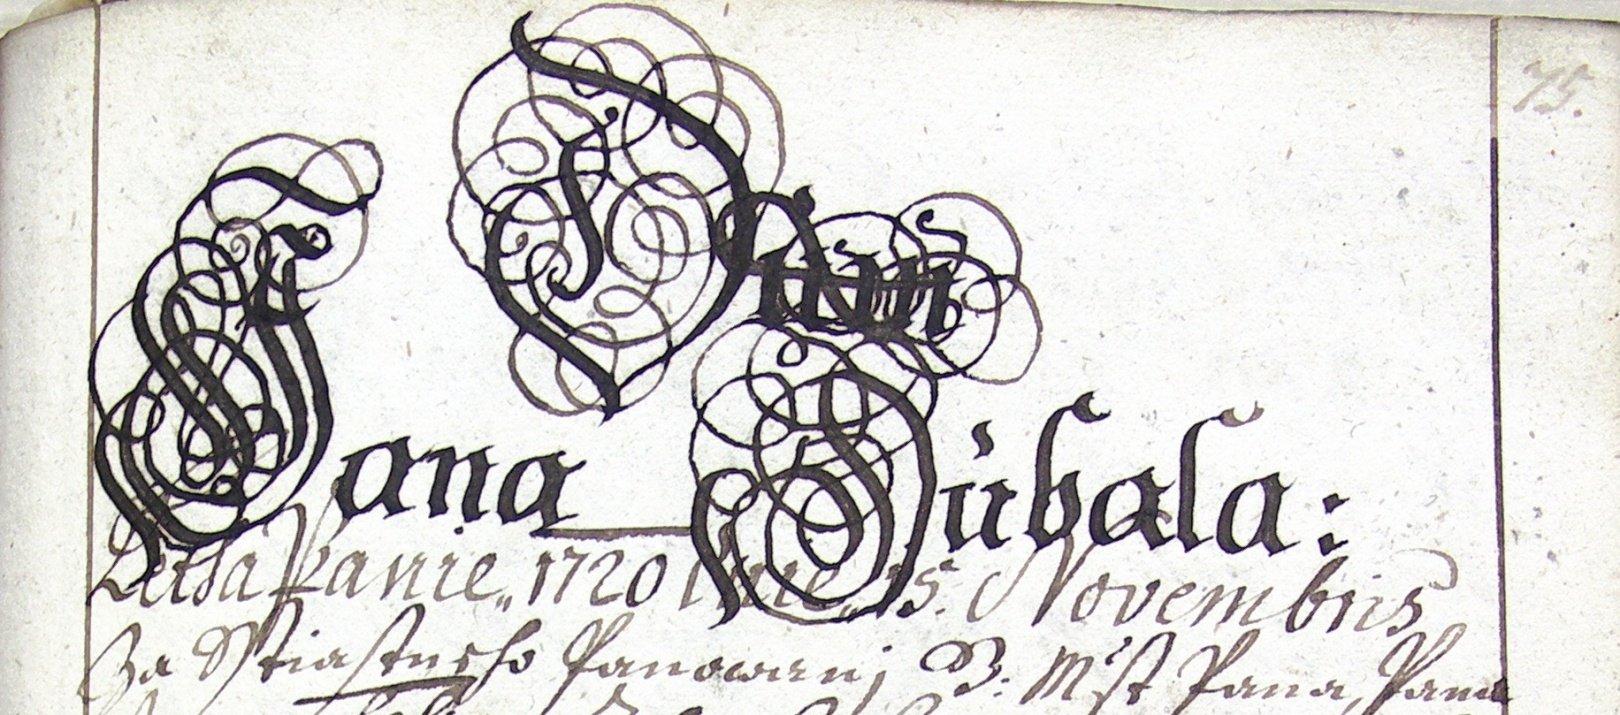 75.
Dům
Jana Kubala:
Letha Panie, 1720 dne, 15. Novembris
Za Sstiastneho Panowani, B: Mst Pana, Pana